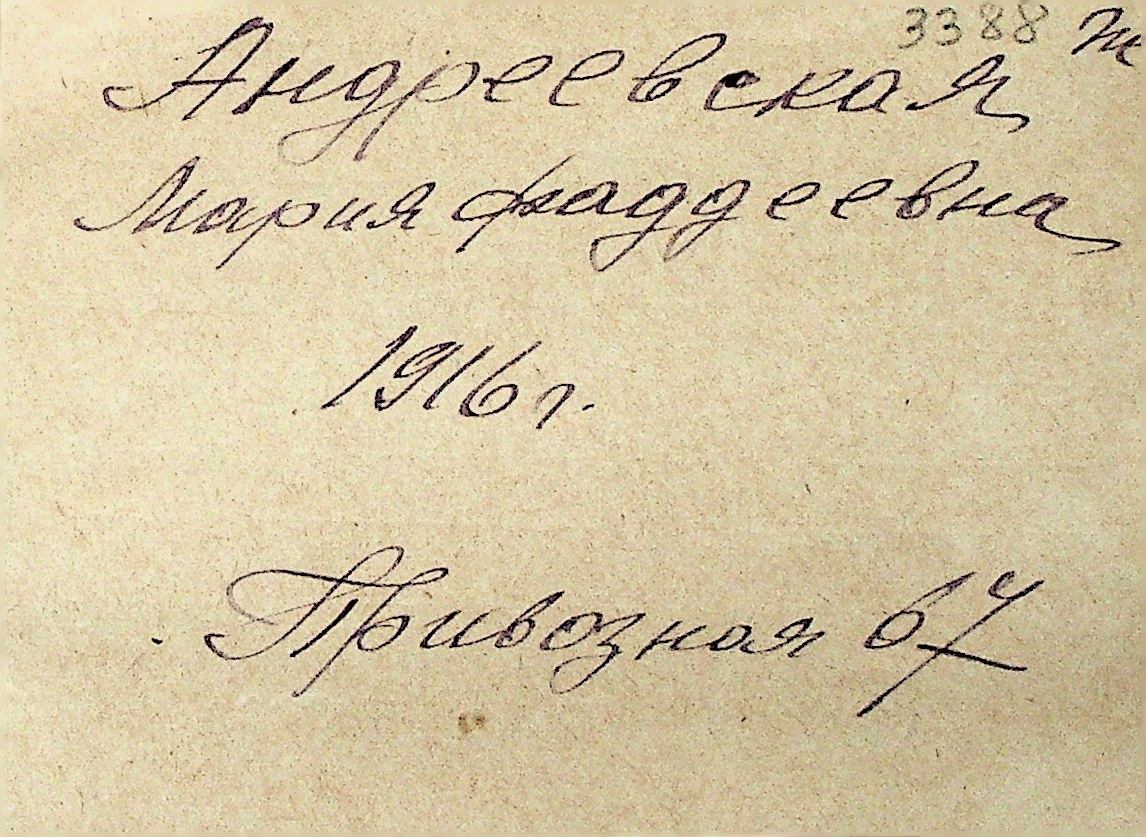 3388
Андреевская
Мария Фаддеевна
1916 г.
Привозная 67